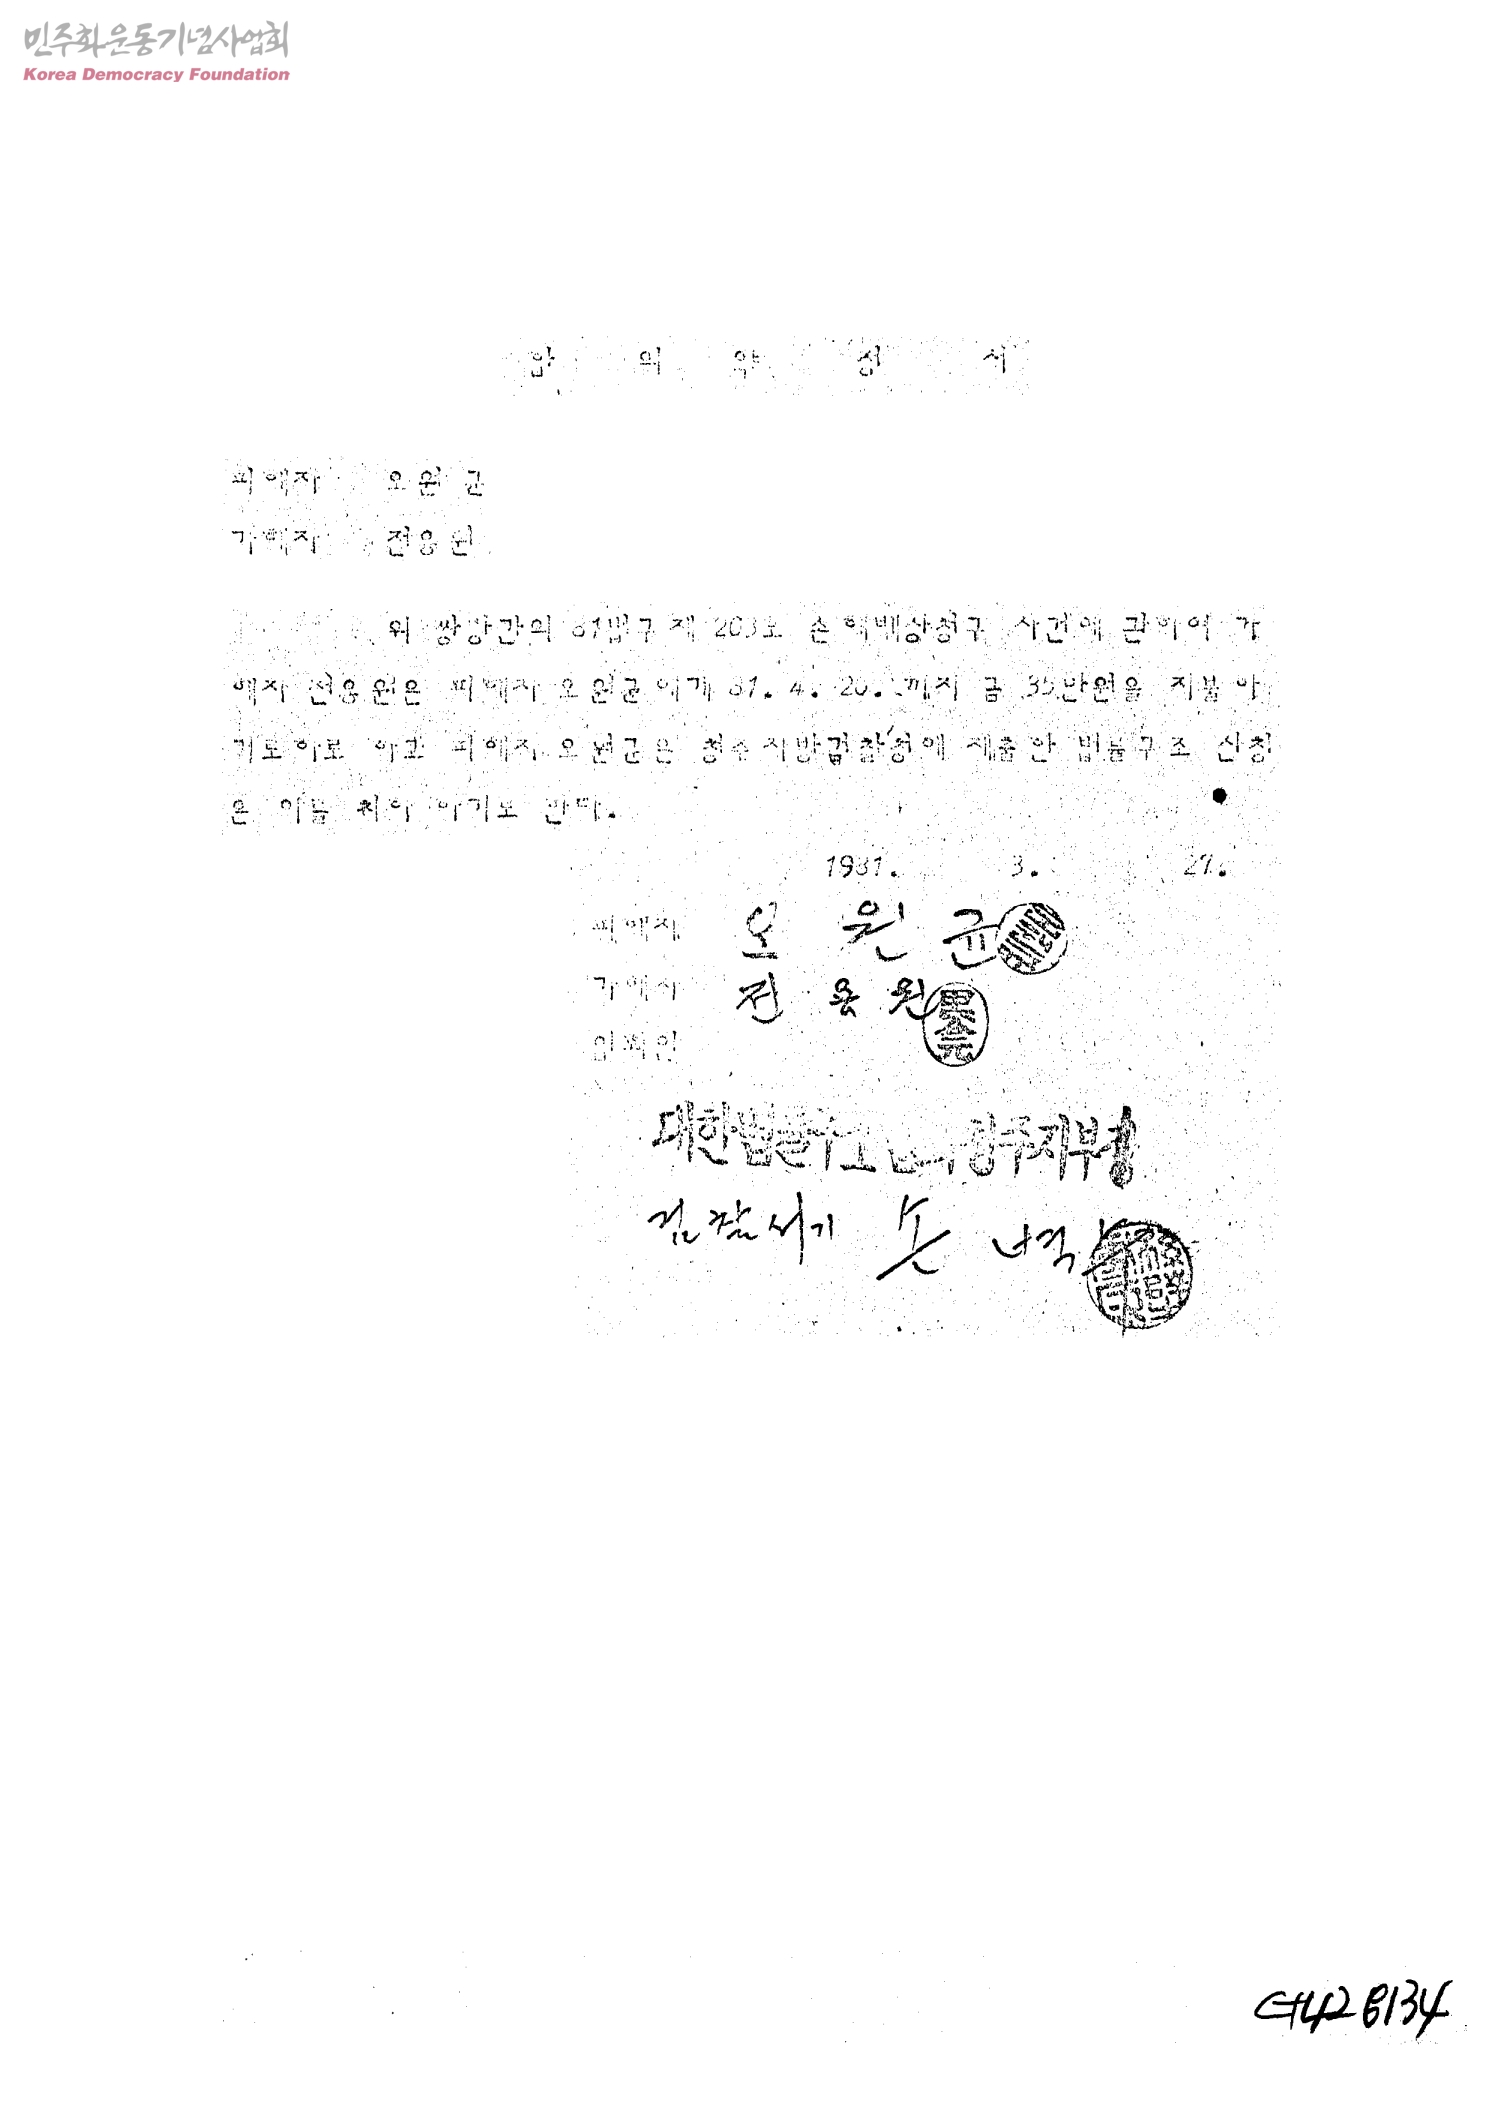 민주화운동기념사업회
Korea Democracy Foundation
합 의 약 정 서
피해자 오원균
가해자 전용원
위 쌍방간의 81법구제 203호 손해배상청구 사건에 관하여 가
해자 전용원은 피해자 오원균에게 81. 4. 20. 까지 금 35만원을 지불하
기로하고 피해자 오원균은 청주지방검찰청에 제출한 법률구조 신청
은 이를 취하 하기로 한다.
1981. 3. 27.
피해자 오 원 균
가해자 전 용 원
입회인
대한법률구조 청주지부장
검찰서기 손
8134